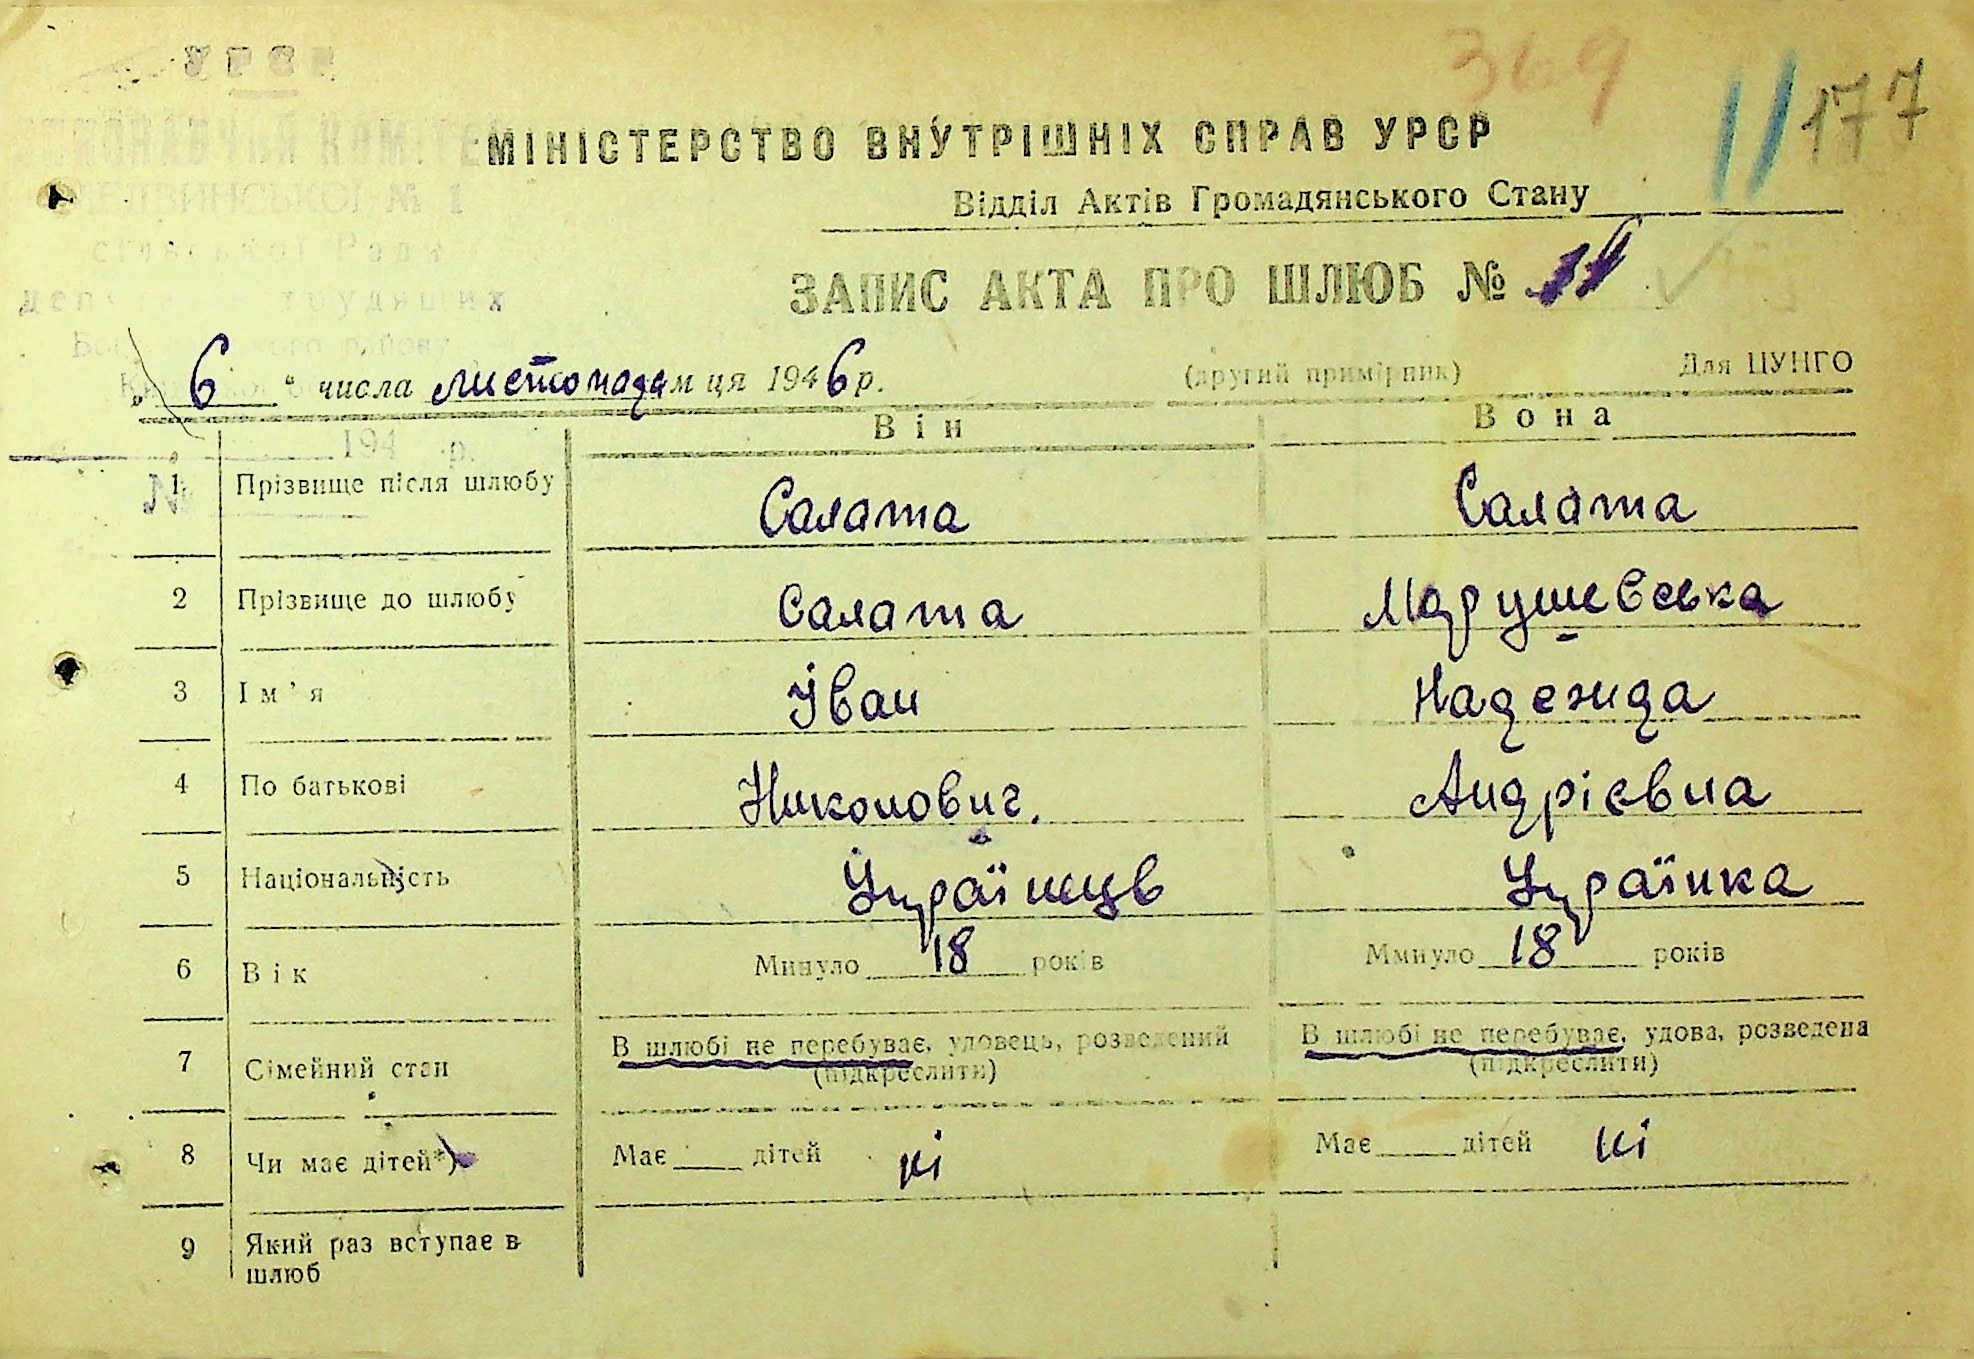 УРСР
369
11 177
МІНІСТЕРСТВО ВНУТРІШНІХ СПРАВ УРСР
Відділ Актів Громадянського Стану
сільської Ради
депутатів трудящих
ЗАПИС АКТА ПРО ШЛЮБ № 11
„ 6 “ числа листопада м ця 1946 р.
(другий примірник) Для ЦУНГО
194 р.
№
Він Вона
1 Прізвище після шлюбу Салата Салата
2 Прізвище до шлюбу Салата Марушевська
3 Ім’я Іван Надежда
4 По батькові Никонович. Андрієвна
5 Національність Українець Українка
6 Вік Минуло 18 років Ммнуло 18 років
7 Сімейний стан В шлюбі не перебуває, удовець, розведений В шлюбі не перебуває, удова, розведена
(підкреслити) (підкреслити)
8 Чи має дітей*) Має дітей ні Має дітей ні
9 Який раз вступає в
шлюб